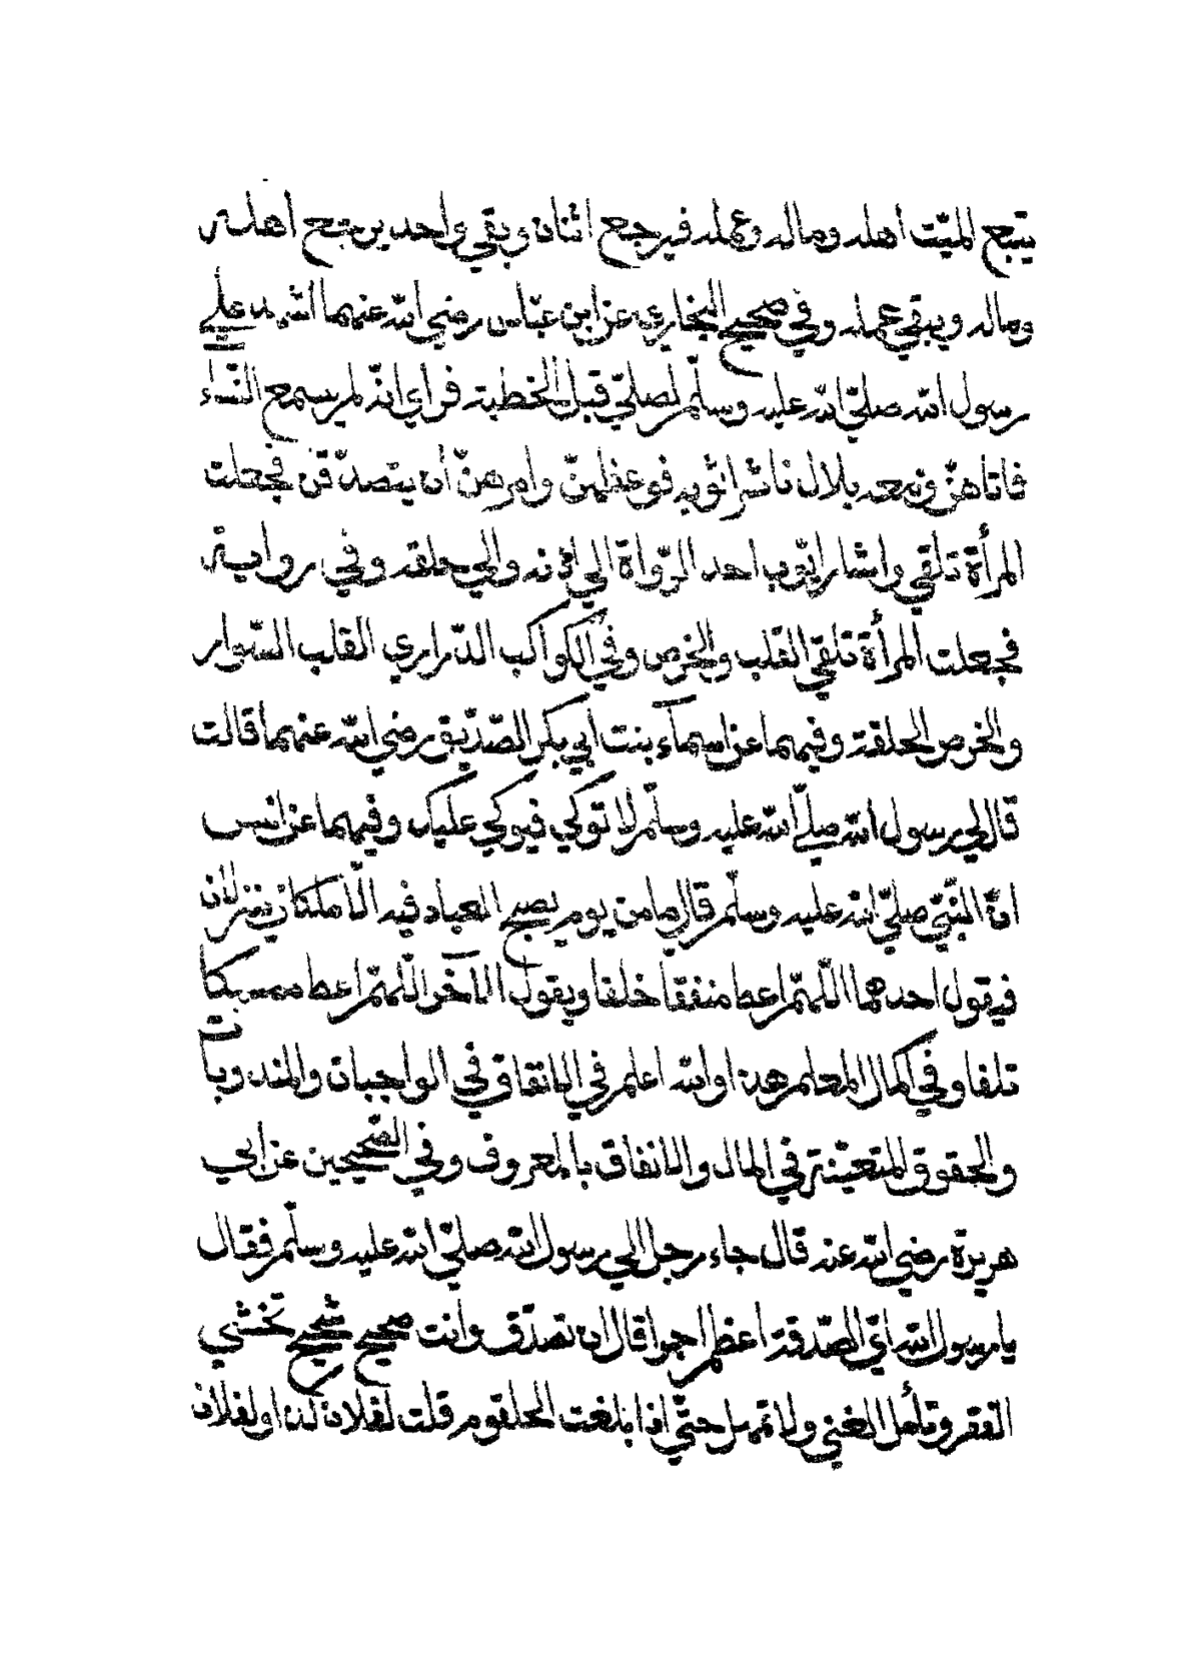 يتبع الميّت اهله وماله وعمله فيرجع اثنان ويبقي واحد يرجع اهله
وماله ويبقي عمله وفي صحيح البخاري عن ابن عبّاس رضي الله عنهما اشهد علي
رسول الله صلّي الله عليه وسلّم لصلّي قبل الخطبة فراي انّه لم يسمع النّساء
فاتاهنّ ومعه بلال ناشر ثوبه فوعظهنّ وامرهنّ أن يتصدّقن فجعلت
المرأة تلقي واشار ايّوب احد الرّواة الي اذنه والي حلقه وفي رواية
فجعلت المرأة تلقي القلب والخرص وفي الكواكب الدّراري القلب السّوار
والخرص الحلقة وفيهما عن اسمآء بنت أبي بكر الصّدّيق رضي الله عنهما قالت
قال لي رسول الله صلّي الله عليه وسلّم لا توكي فيوكي عليك وفيهما عن انس
انّ النّبيّ صلّي الله عليه وسلّم قال ما من يوم يصبح العباد فيه الّا ملكان ينزلان
فيقول احدهما اللّهمّ اعط منفقا خلفا ويقول الآخر اللّهمّ اعط ممسكا
تلفا وفي اكمال المعلم هذا والله اعلم في الانفاق في الواجبات والمندوبات
والحقوق المتعيّنة في المال والانفاق بالمعروف وفي الصّحيحين عن ابي
هريرة رضي الله عنه قال جاء رجل الي رسول الله صلّي الله عليه وسلّم فقال
يا رسول الله ايّ الصّدقة اعظم اجرا قال ان تصدّق وانت صحيح شحيح تخشي
الفقر وتأمل الغني ولا تمهل حتّي اذا بلغت الحلقوم قلت لفلان كذا ولفلان